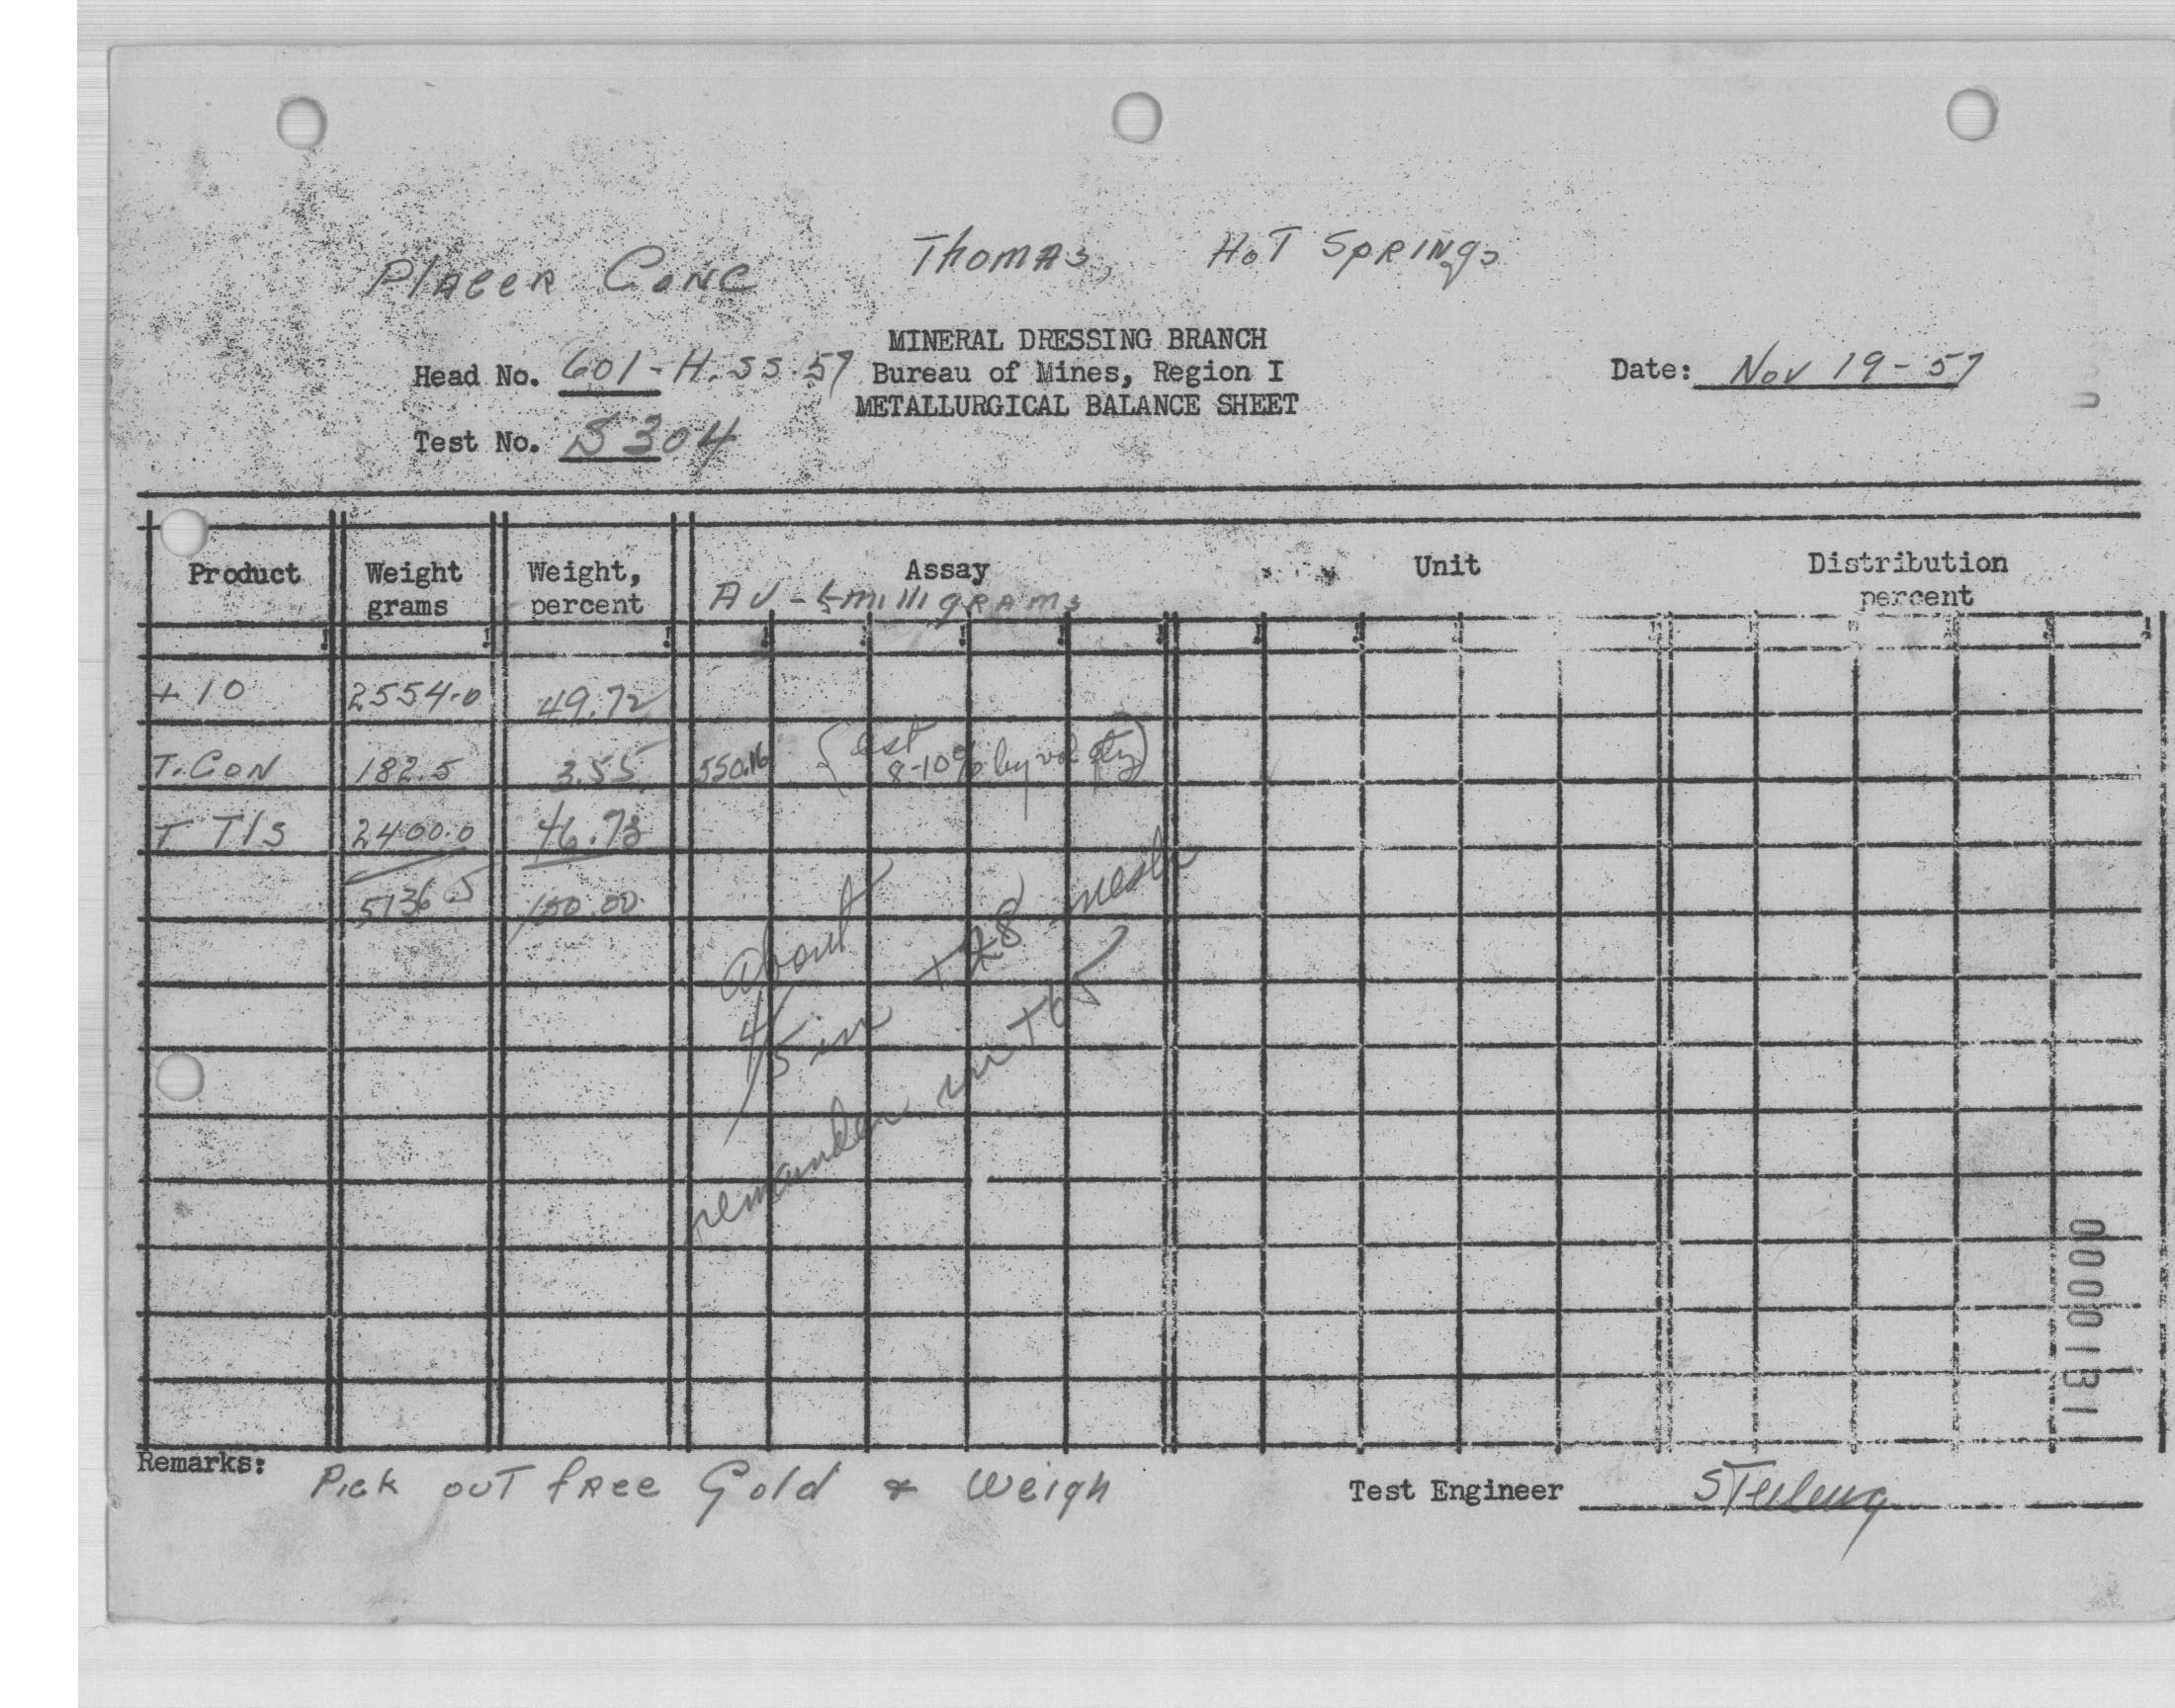 Placer Conc Thomas, Hot Springs
MINERAL DRESSING BRANCH
Head No. 601-H.SS.57 Bureau of Mines, Region I Date: Nov 19-57
METALLURGICAL BALANCE SHEET
Test No. S304
Product Weight grams Weight, percent Assay Unit Distribution percent
AU - milligrams
+10 2554.0 49.72
T. Con 182.5 3.55 550.16 (est 8-10% by vol
T Tls 2400.0 46.73
5136.5 100.00
about
4/5 in +28 mesh
remainder in +65
Remarks: Pick out free Gold & Weigh Test Engineer Sterling
0000131